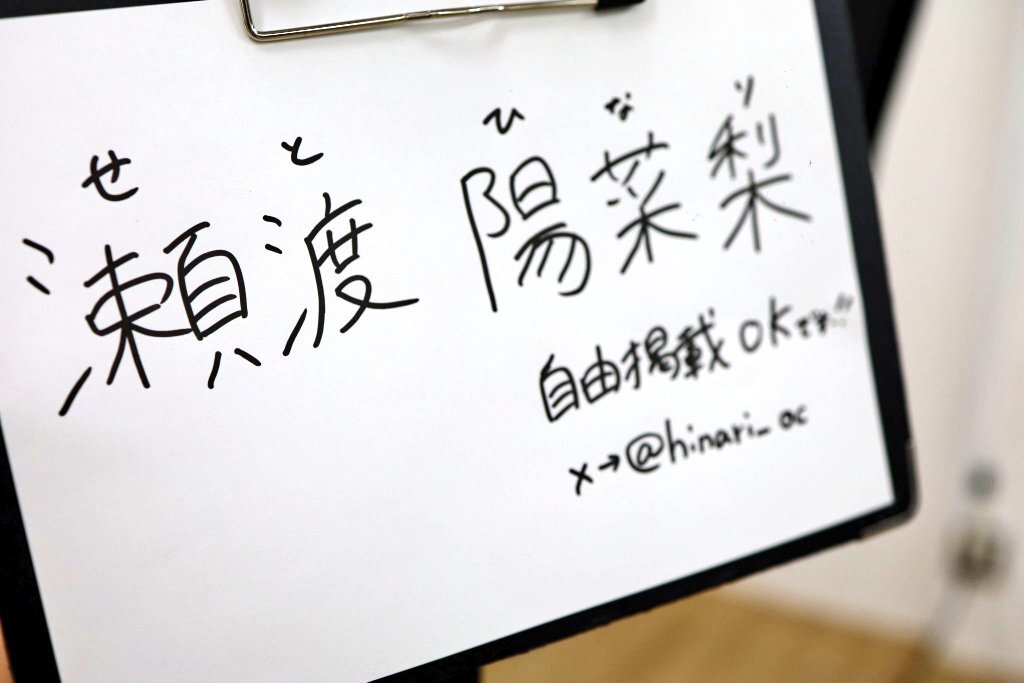 せ と ひ な り
瀬渡 陽菜梨
自由掲載OKです!!
X→@hinari_oc